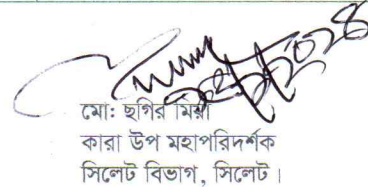 মো: ছগির মিয়া
কারা উপ মহাপরিদর্শক
সিলেট বিভাগ, সিলেট।